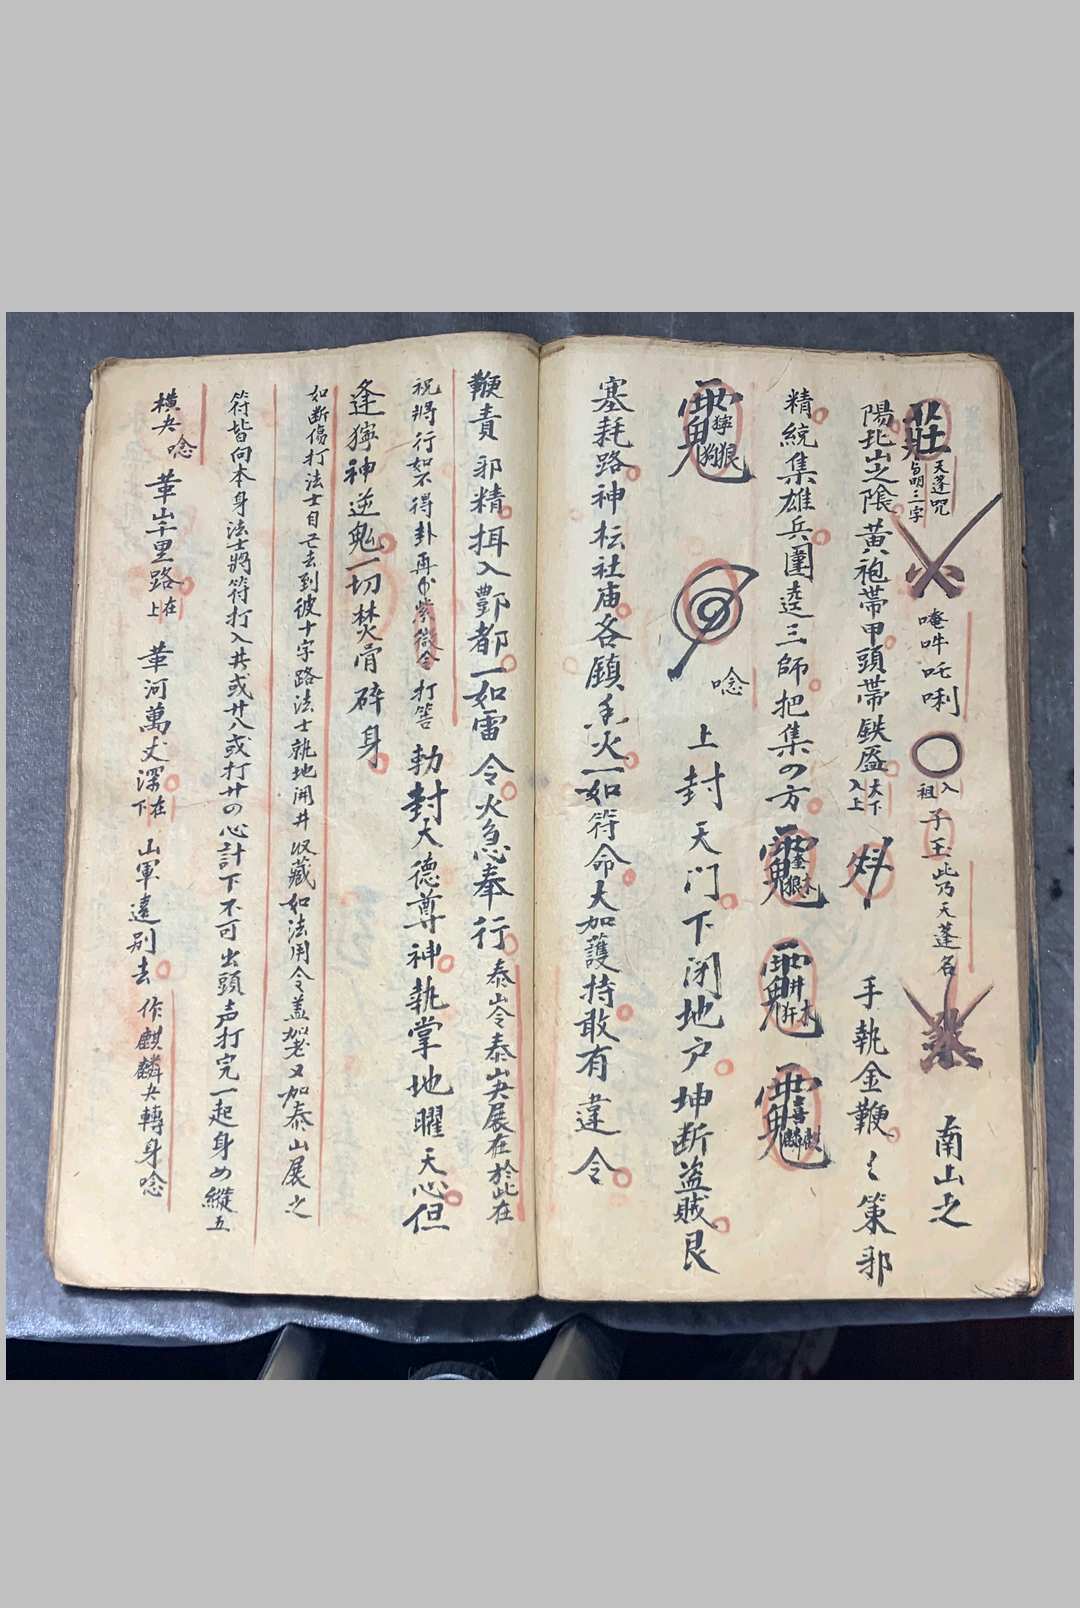 莊 天蓬咒 唵吽吒唎 入祖 子玉此乃天蓬名 南山之
陽北山之陰黃袍帶甲頭帶鉄盔 大下入上 手執金鞭々策邪
精統集雄兵圍逵三師把集の方
唸 上封天門下閉地户坤断盗賊艮
塞耗路神枟社庙各鎮香火一如符命大加護持敢有違令
鞭責邪精拝入酆都一如雷令火急奉行 泰山令泰山夬展在於此在
祝將行如不得卦再 紫微令打筶 勅封大德尊神執掌地曜天心但
逢獰神逆鬼一切焚骨碎身
如断傷打法士自亡去到彼十字路法士就地開井収藏如法用令盖架又加泰山展之
符皆向本身法士將符打入井或廿八或打廿の心計下不可出頭声打完一起身め縱五
橫夬唸 華山千里路 在上 華河萬丈深 在下 山軍遠别去 作麒麟夬轉身唸